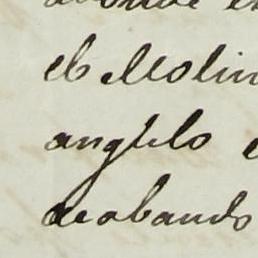 el Molin
angulo
acabando